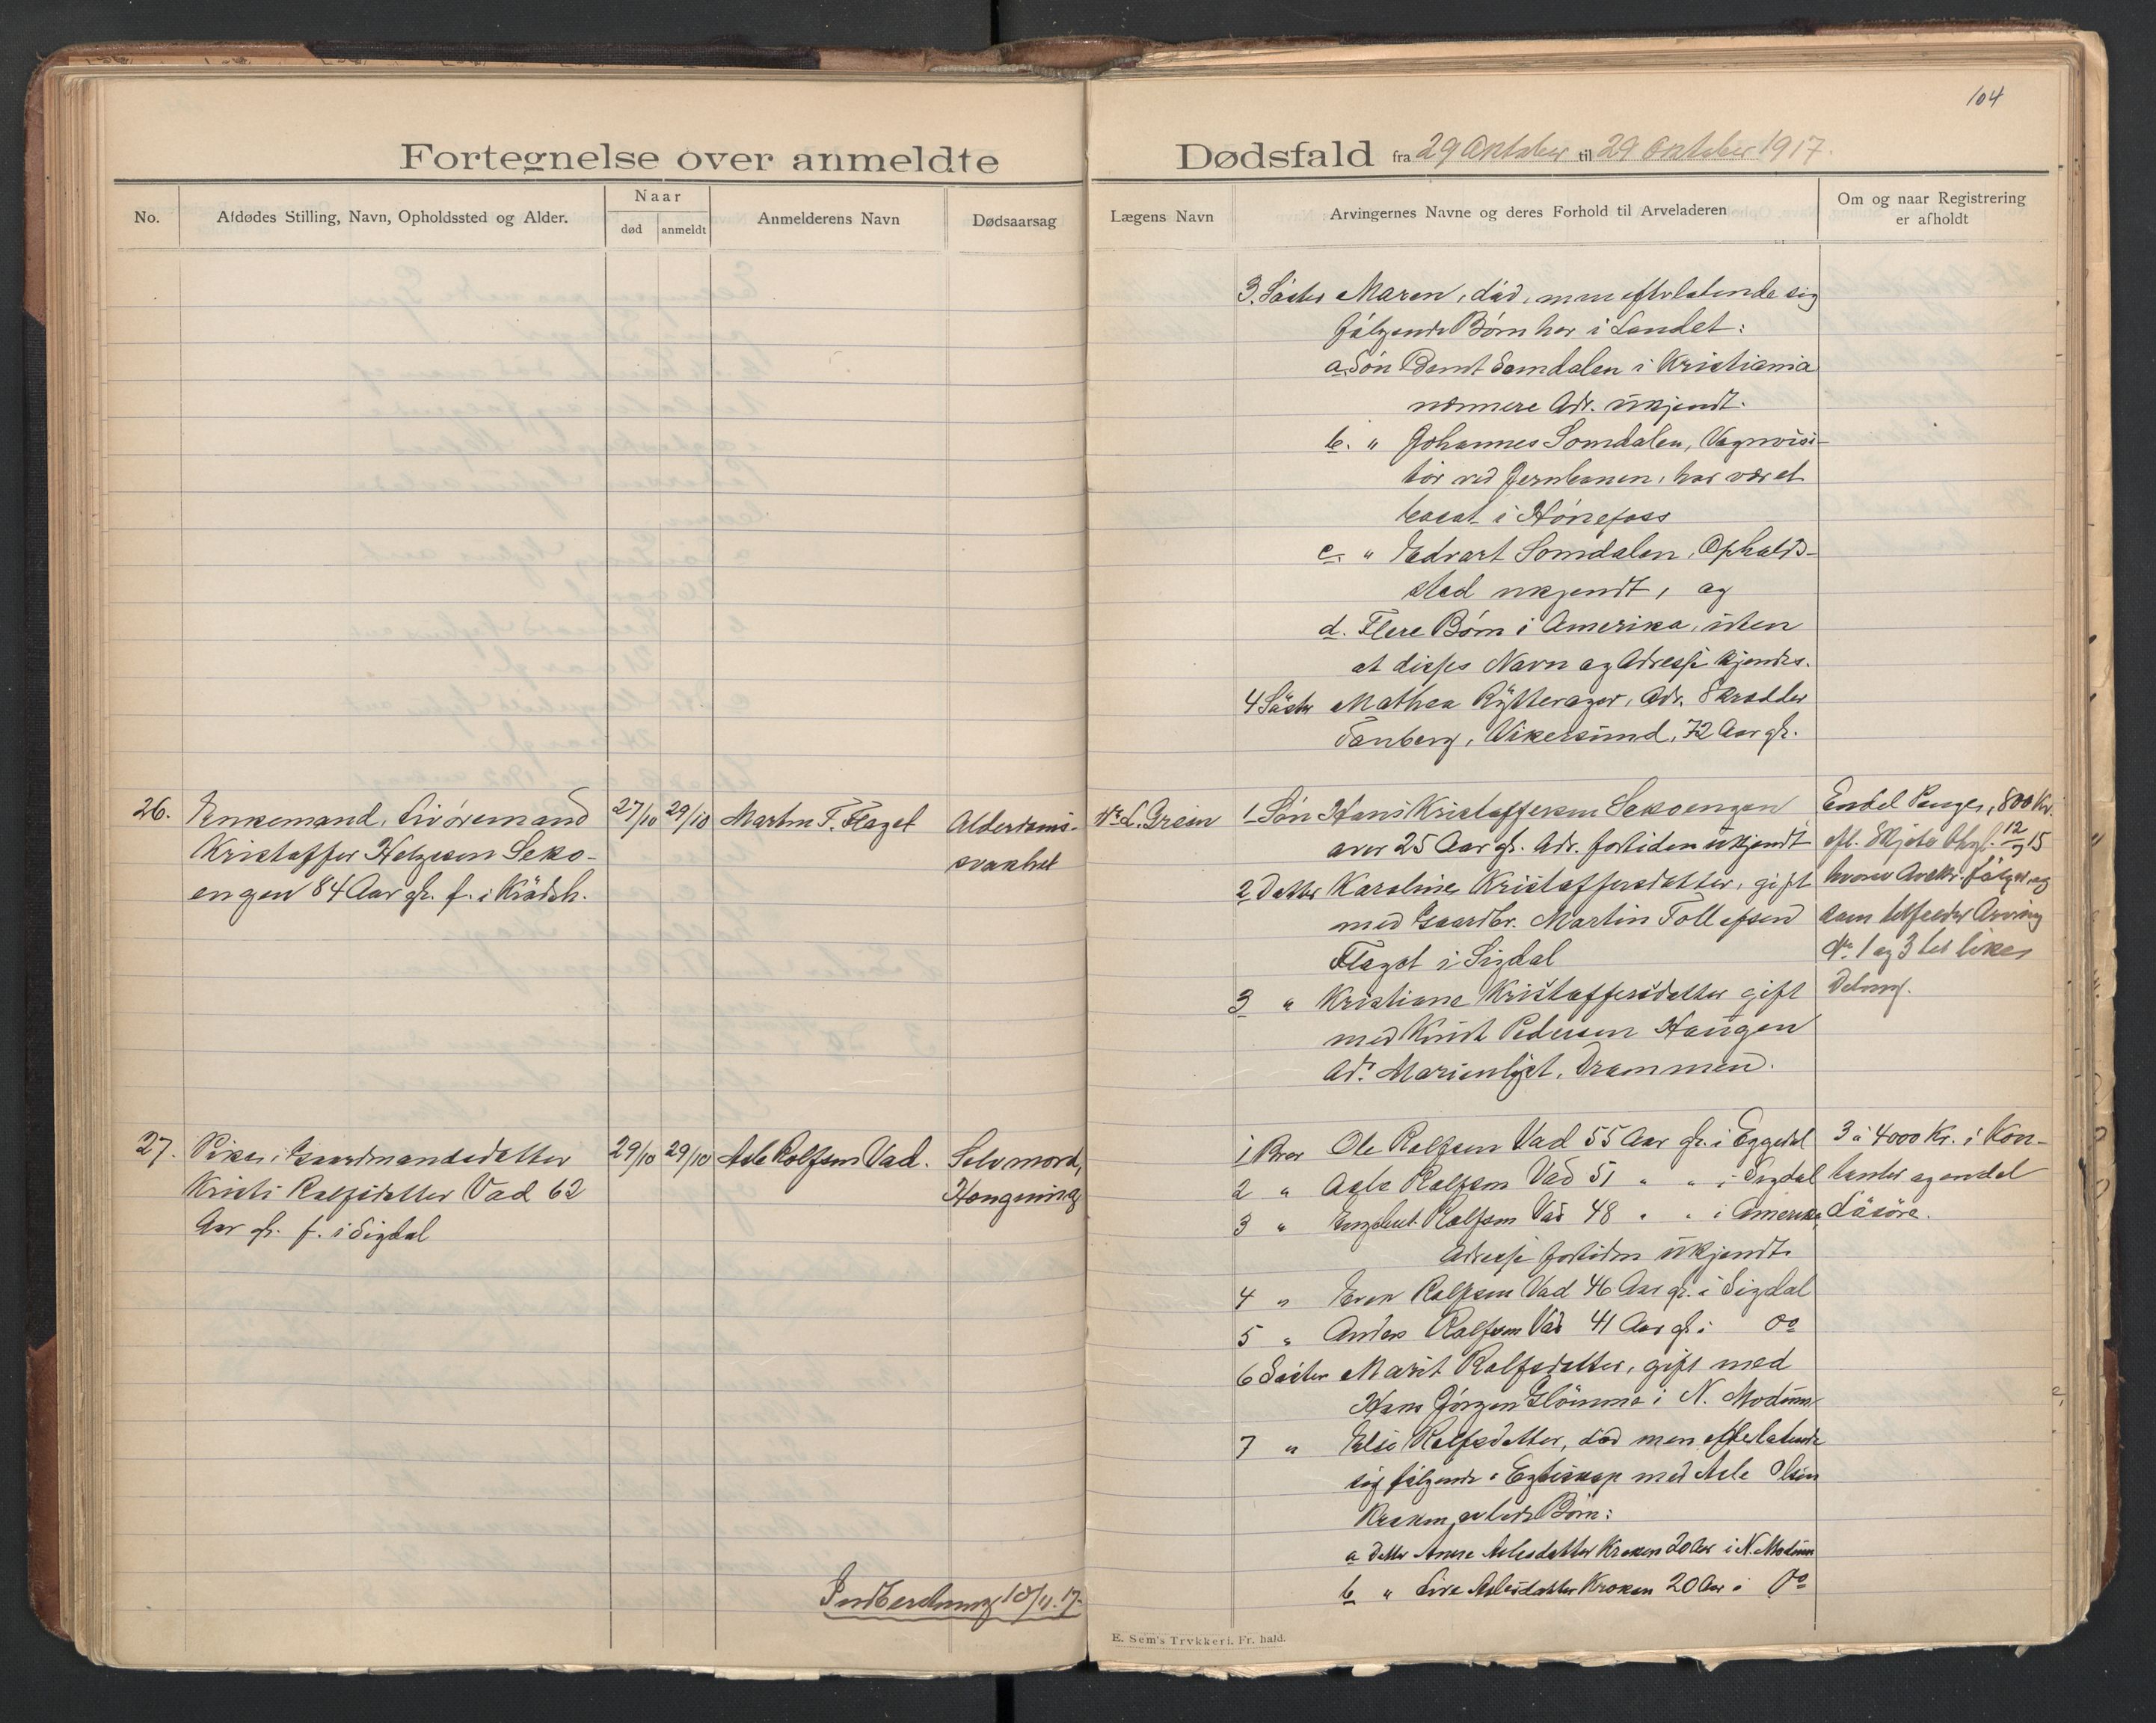 104
Fortegnelse over anmeldte Dødsfald fra 29 Oktober til 29 Oktober 1917.
No.
Afdødes Stilling, Navn, Opholdssted og Alder.
Naar
død
anmeldt
Anmelderens Navn
Dødsaarsag
Lægens Navn
Arvingernes Navne og deres Forhold til Arveladeren
Om og naar Registrering
er afholdt
3. Søster Maren, död, men efterlatende sig
følgende Børn her i Landet:
a. Søn Bernt Somdalen i Kristiania
nærmere Adr. ukjendt.
b. " Johannes Somdalen, Vognvisi-
tør ved Jernbanen, har været
bosat i Hönefoss
c. " Edvart Somdalen, Opholds-
sted ukjendt, og
d. Flere Börn i Amerika, uten
at disses Navn og Adresse kjendes.
4 Søster Mathea Rytterager, Adr. Skrædder
Tanberg, Vikersund, 72 Aar gl.
26.
Enkemand, Livöremand
Kristoffer Helgesen Seko-
engen 84 Aar gl. f. i Krödsh.
27/10 29/10
Martin T. Flaget
Alderdoms-
svakhet
Dr. L. Grøon
1 Søn Hans Kristoffersen Sekoengen
over 25 Aar gl. Adr. fortiden ukjendt
2 Datter Karoline Kristoffersdatter, gift
med Gaardbr. Martin Tollefsen
Flaget i Sigdal
3 " Kristiane Kristoffersdatter gift
med Knut Pedersen Haugen
Adr. Marienlyst, Drammen.
Endel Penger, 800 Kr.
efl. Skjöte thgl. 12/7 15
hvorav følger og
som tilfalder Arving
No 1 og 3 til likes
Deling.
27.
Pike, Gaardmandsdatter
Kristi Rolfsdatter Vad 62
Aar gl. f. i Sigdal
29/10 29/10
Asle Rolfsen Vad.
Selvmord,
Hængning
1 Bror Ole Rolfsen Vad 55 Aar gl. i Eggedal
2 " Asle Rolfsen Vad 51 " " i Sigdal
3 " Engebret Rolfsen Vad 48 " " i Amerika,
Adresse fortiden ukjendt.
4 " Even Rolfsen Vad 46 Aar gl. i Sigdal
5 " Anders Rolfsen Vad 41 Aar gl. i Do
6 Søster Marit Rolfsdatter, gift med
Hans Jörgen Glömme i N. Modum
7 " Elsie Rolfsdatter, död men efterlatende
sig følgende i Egteskap med Asle Olsen
Kroken, avlede Börn:
a Datter Anne Aslesdatter Kroken 20 Aar i N. Modum
b " Live Aslesdatter Kroken 20 Aar i Do
3 à 4000 Kr. i Kon-
tanter og endel
Lösöre.
Indberetning 10/11.17.
E. Sem's Trykkeri. Fr. hald.